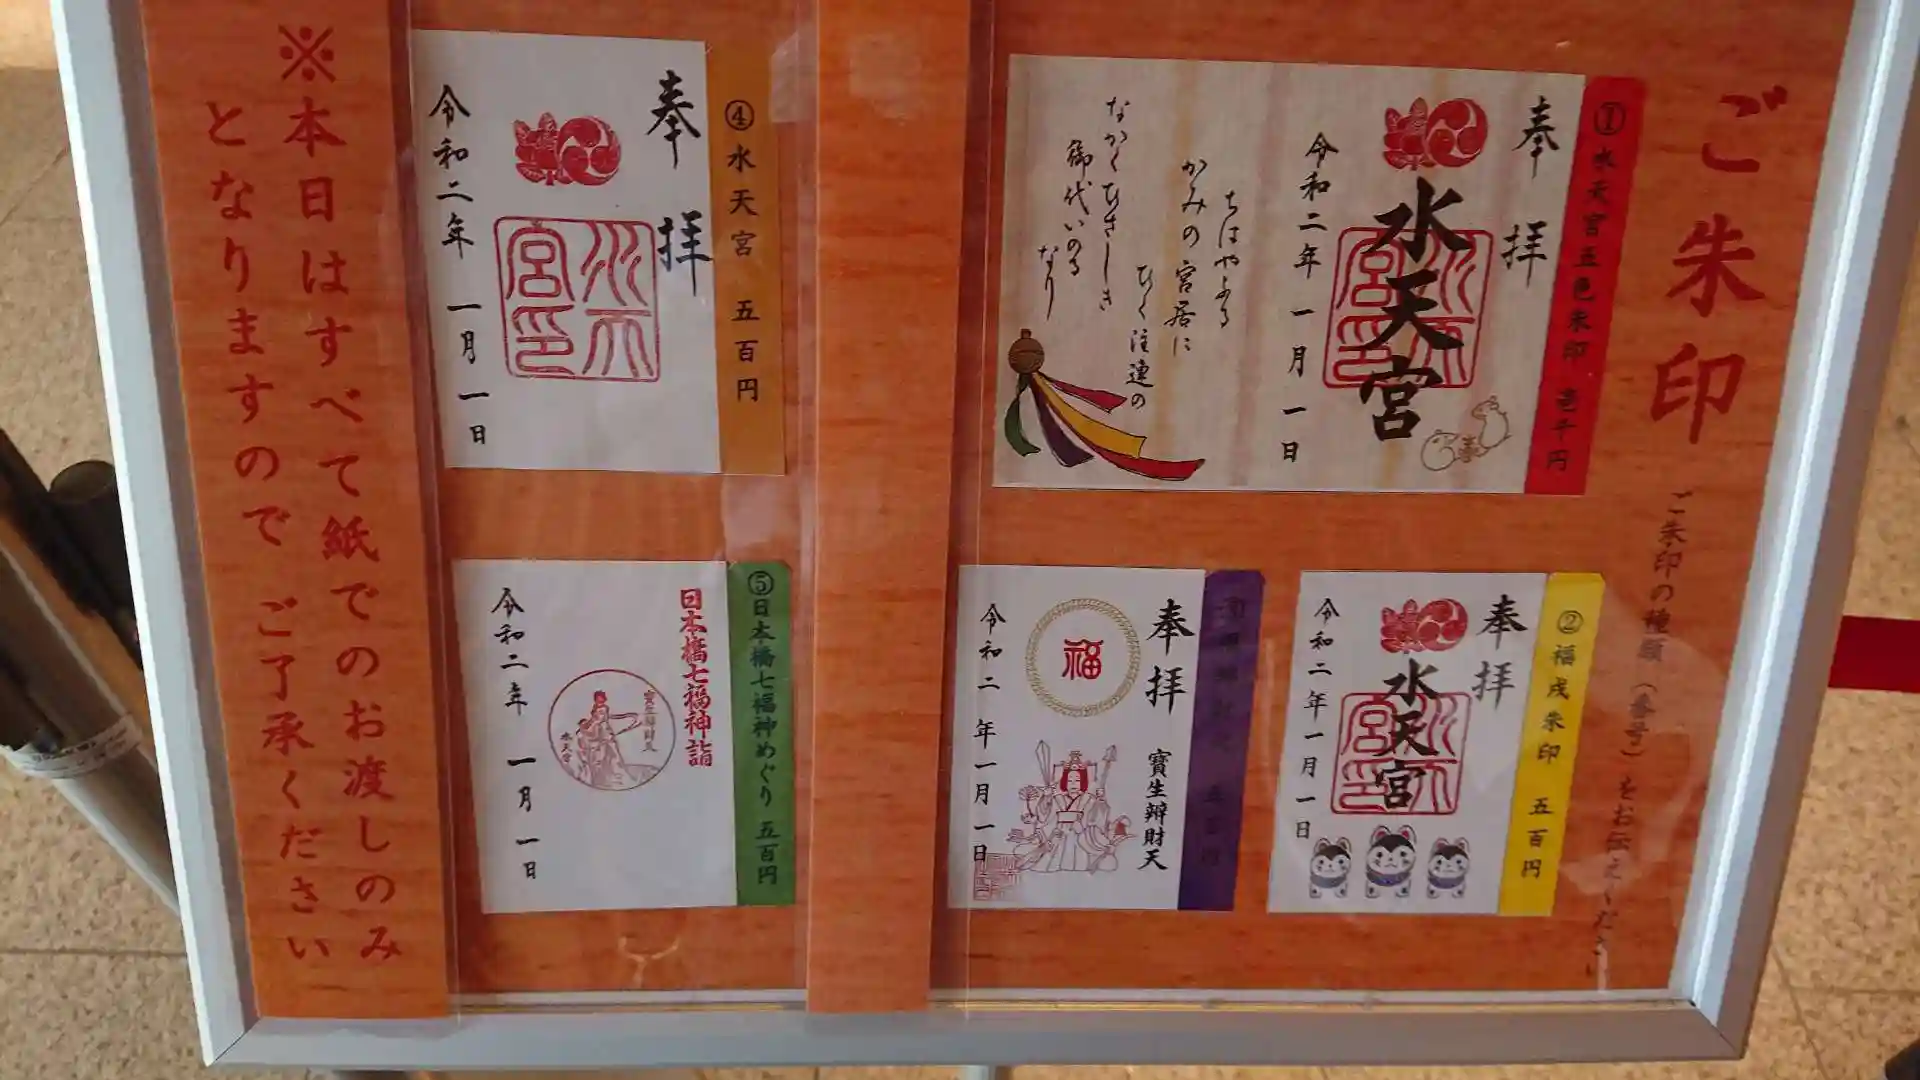 ご朱印
ご朱印の種類（番号）をお伝えください
①水天宮五色朱印 壱千円
奉拝
水天宮
令和二年一月一日
ちはやふる
かみの宮居に
ひく注連の
なかくひさしき
御代いのる
なり
②福戌朱印 五百円
奉拝
水天宮
令和二年一月一日
奉拝
福
寶生辯財天
令和二年一月一日
④水天宮 五百円
奉拝
令和二年一月一日
⑤日本橋七福神めぐり 五百円
日本橋七福神詣
寳生辯財天
水天宮
令和二年一月一日
※本日はすべて紙でのお渡しのみ
となりますのでご了承ください